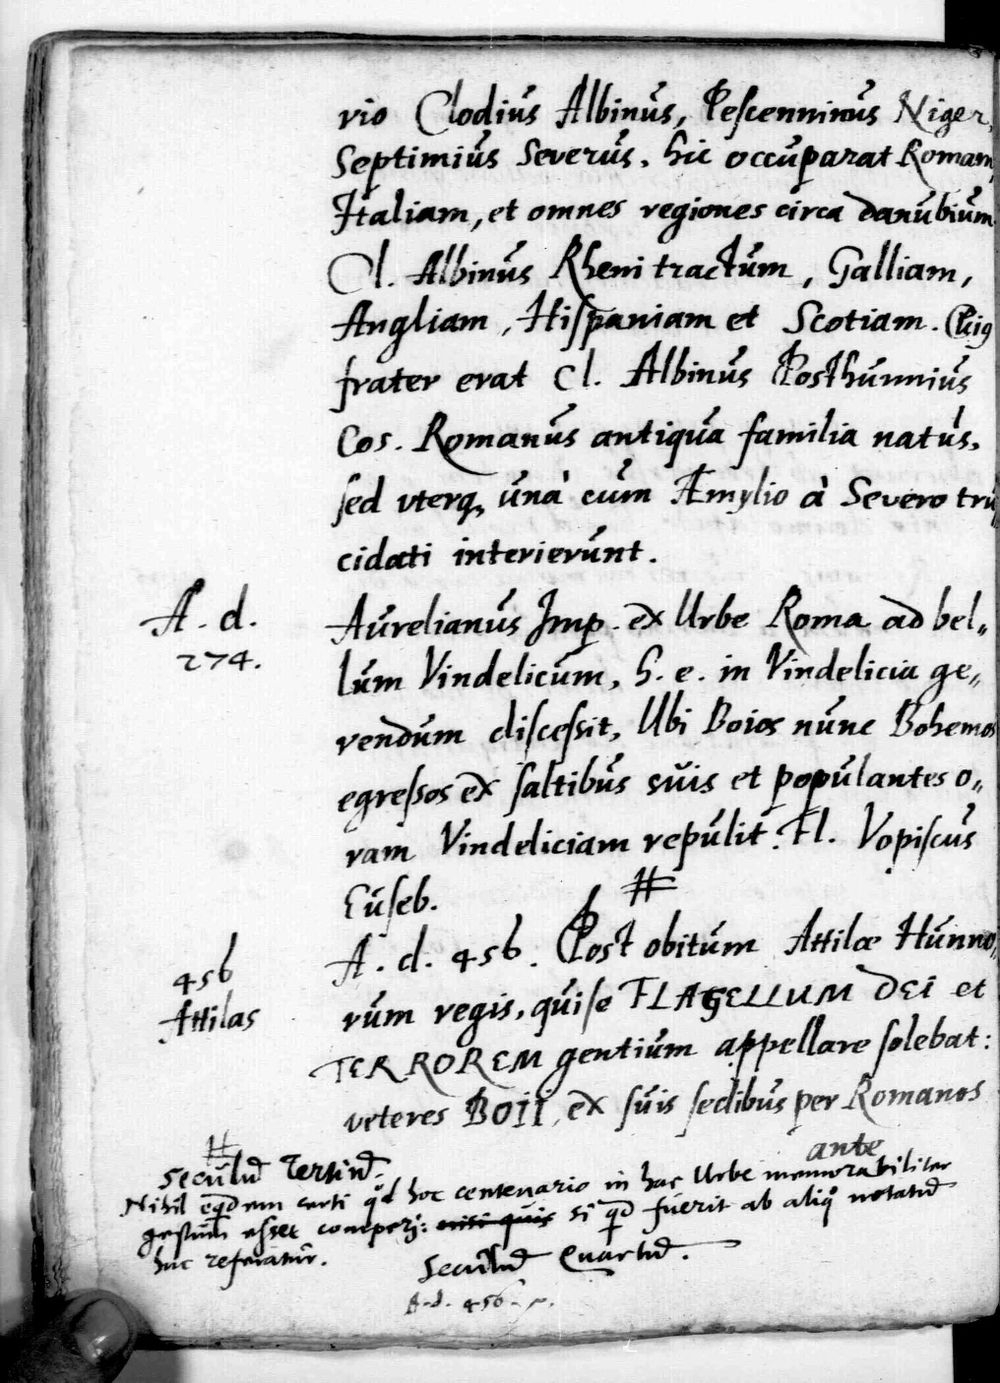 rio Clodiús Albinús, Pescenninús Niger,
Septimiús Severús. hic occúparat Romam,
Italiam, et omnes regiones circa danúbiúm
Cl. Albinús Rheni tractúm, Galliam,
Angliam, Hispaniam et Scotiam.
frater erat Cl. Albinús Posthúmiús
Cos. Romanús antiqúa familia natús,
sed vterq, únà cúm Æmylio à Severo trú
cidati interierúnt.
A. d. Aúrelianús Imp. ex Urbe Roma ad bel„
274. lúm Vindelicúm, h. e. in Vindelicia ge„
rendúm discessit, Ubi Boios núnc Bohemos
egressos ex saltibús súis et popúlantes o„
ram Vindeliciam repúlit. Fl. Vopiscús
Eúseb. #
456 A. d. 456. Post obitúm Attilæ Húnno„
Attilas rúm regis, qúi se FLAGELLUM DEI et
TERROREM gentiúm appellare solebat:
veteres BOII, ex súis sedibús per Romanos
#
Seculū Tertiū. ante
Nihil eqdem certi qd hoc centenario in hac Urbe memorabiliter
gestúm esset comperj: nisi quis si qd fúerit ab aliqo notatū
húc referatúr.
Seculū Quartū.
A. d. 456.